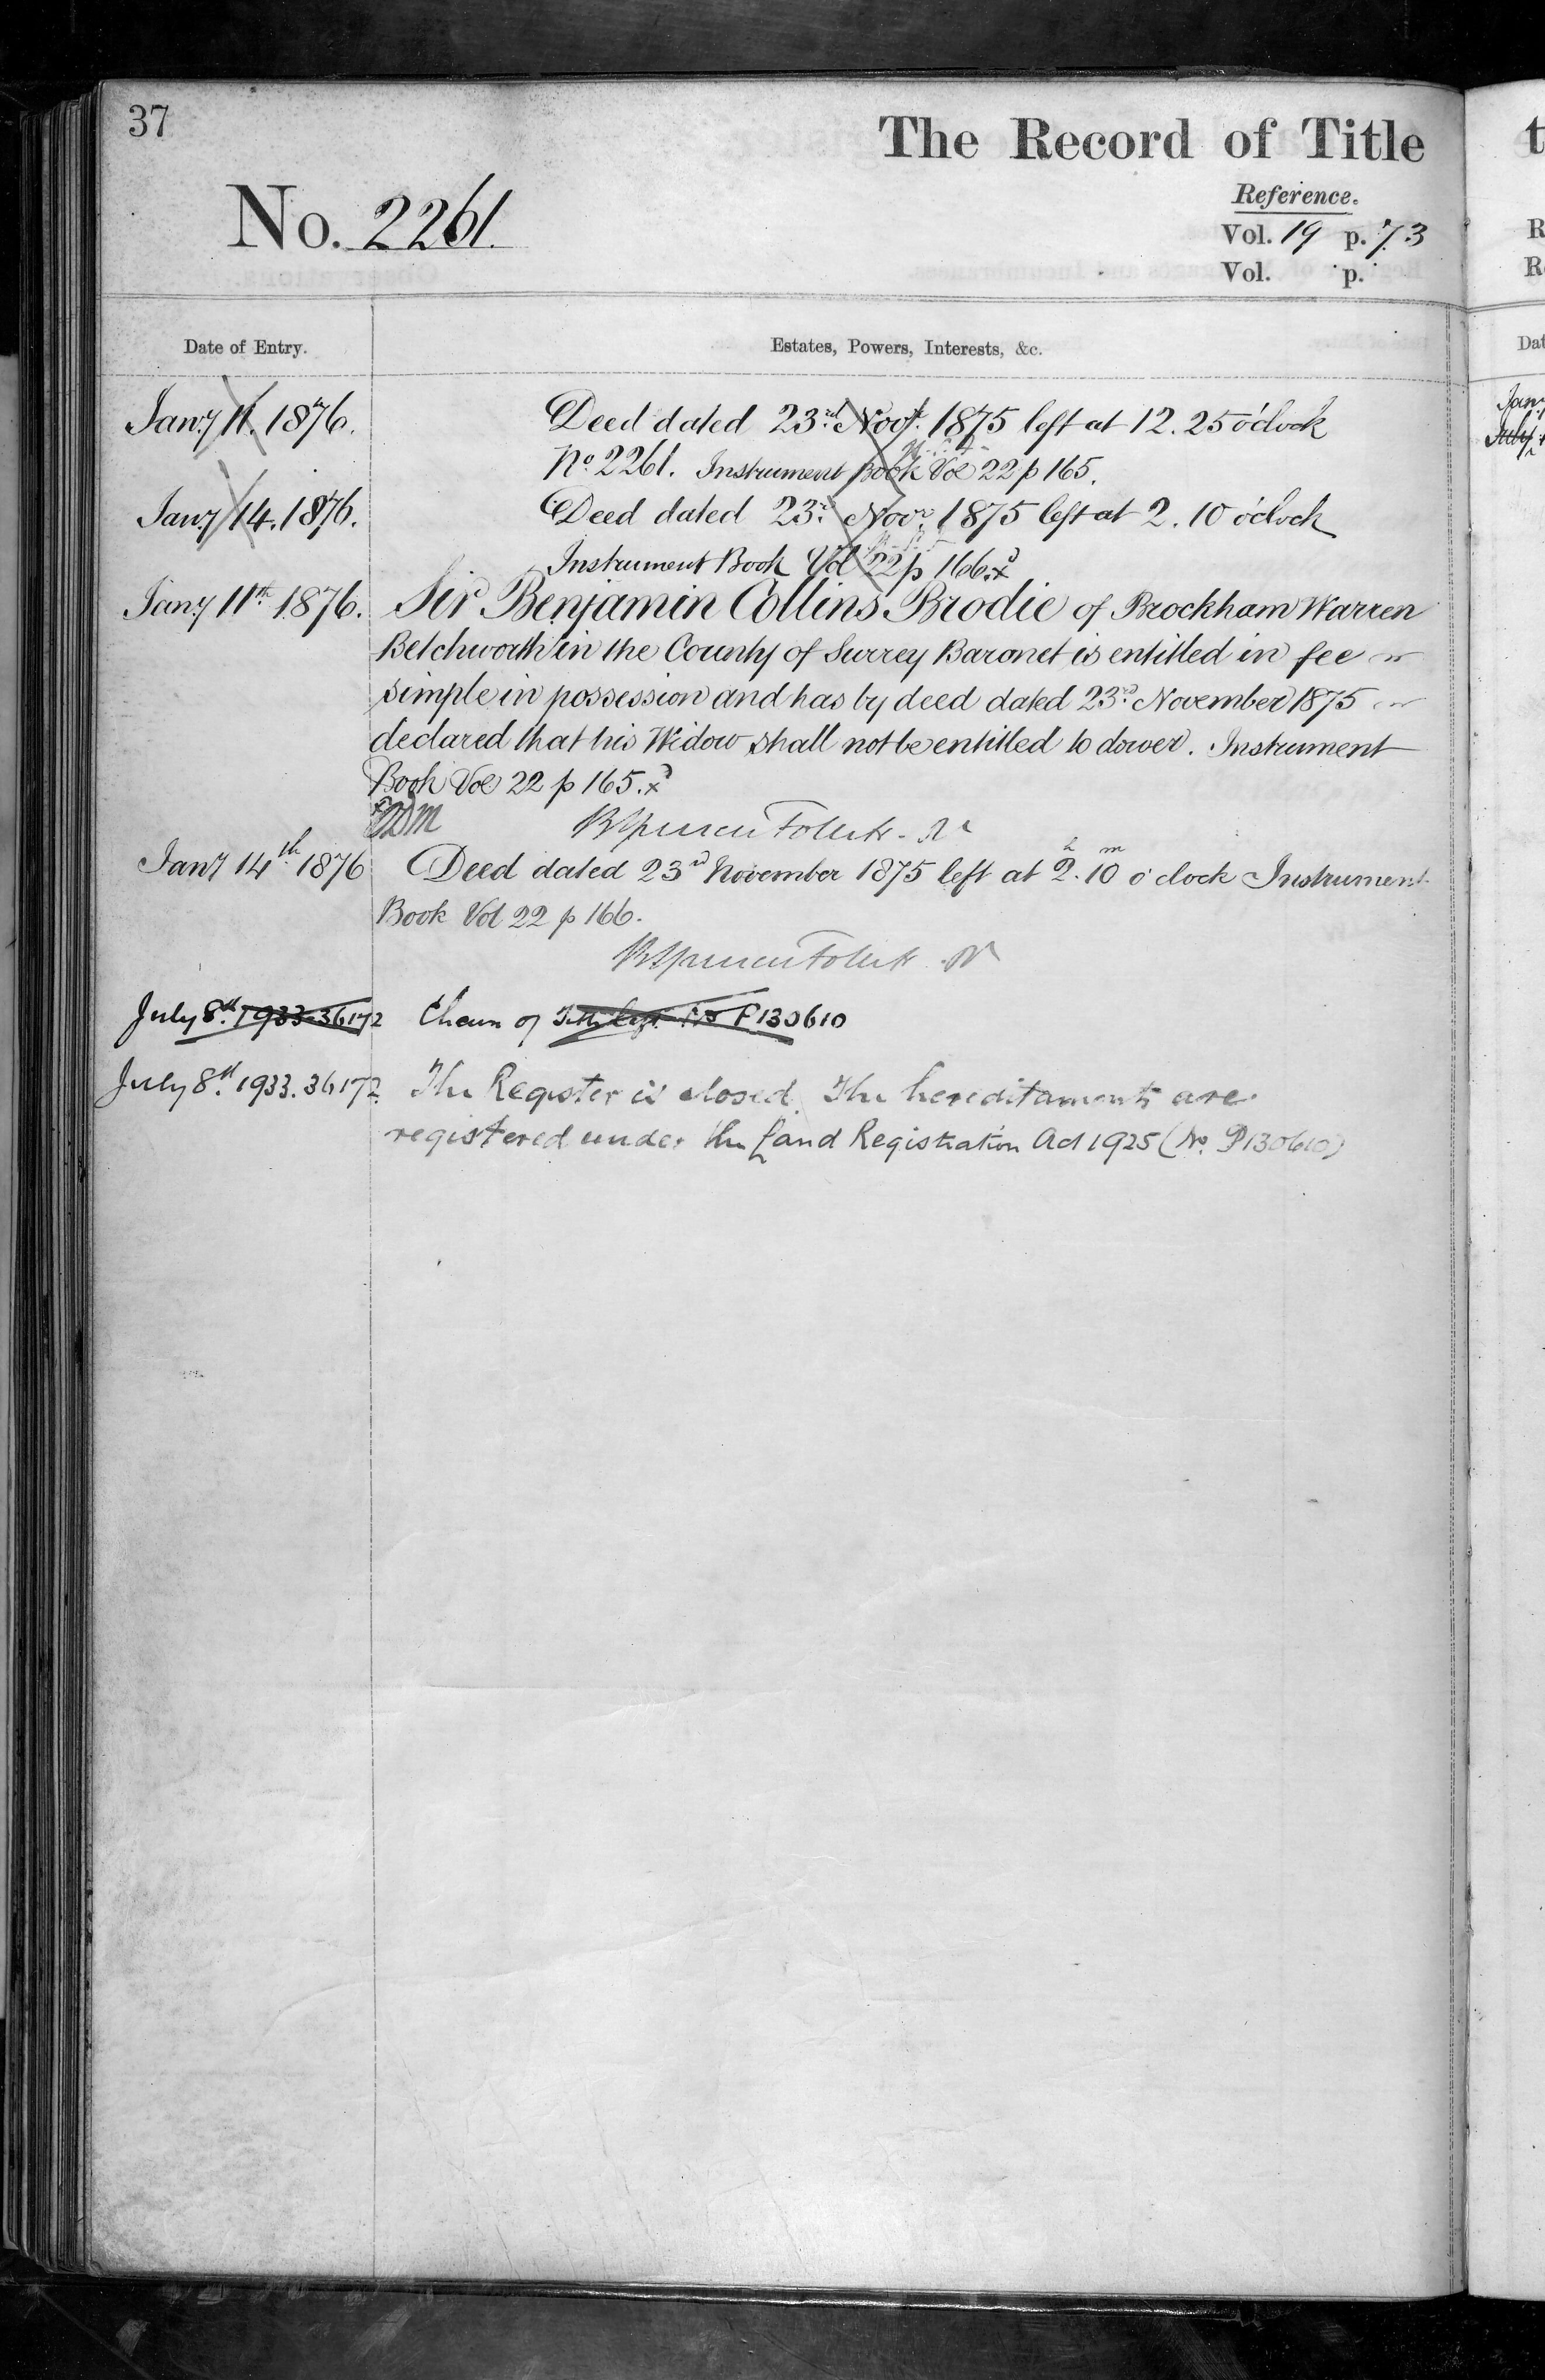 37
The Record of Title
No. 2261.
Reference.
Vol. 19 p. 73
Vol. p.
Date of Entry.
Estates, Powers, Interests, &c.
Jany 11. 1876.
Deed dated 23rd Novr. 1875 left at 12.25 o'clock
No. 2261. Instrument Book Vol 22 p 165.
Jany 14. 1876.
Deed dated 23rd Novr. 1875 left at 2.10 o'clock
Instrument Book Vol 22 p 166.
Jany 11th 1876.
Sir Benjamin Collins Brodie of Brockham Warren
Betchworth in the County of Surrey Baronet is entitled in fee
simple in possession and has by deed dated 23rd November 1875
declared that his Widow shall not be entitled to dower. Instrument
Book Vol 22 p 165.
Jany 14th 1876
Deed dated 23rd November 1875 left at 2h. 10m o'clock Instrument
Book Vol 22 p 166.
July 8th. 1933. 36172
of P130610
July 8th. 1933. 36172
The Register is closed. The hereditaments are
registered under the Land Registration Act 1925 (No. P130610)